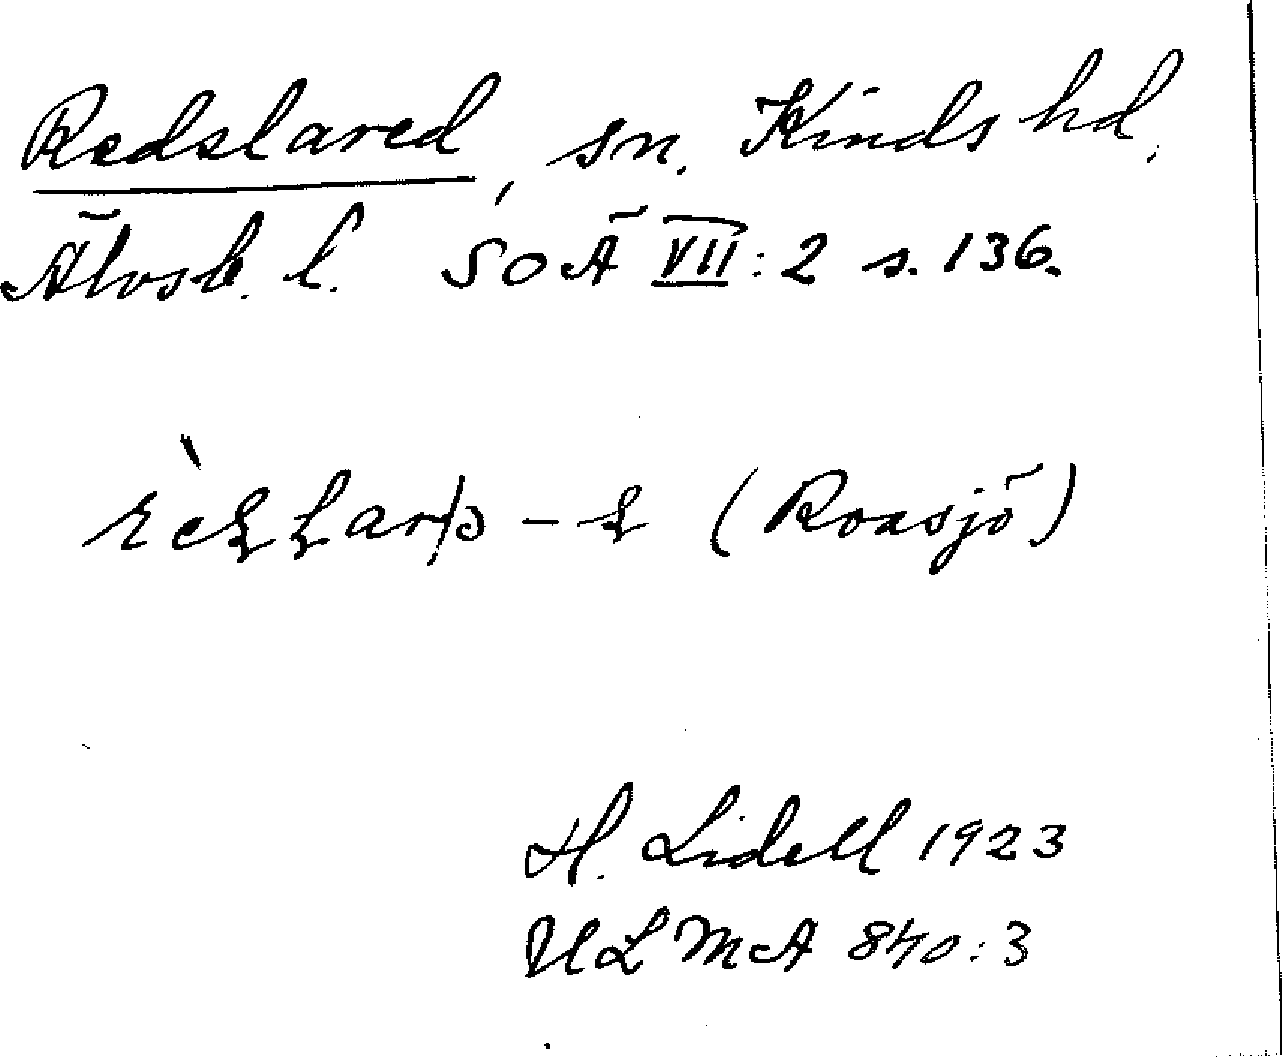 Redslared, sn. Kinds hd,
Älvsb. l. SOÄ VII:2 s. 136.
(Roasjö)
H. Lidell 1923
ULMA 840:3